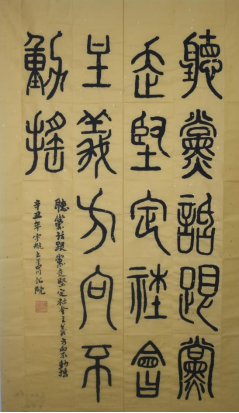 聽黨話跟黨
走堅定社會
主義方向不
動搖
聽黨話跟黨走堅定社會主義方向不動搖
辛丑年